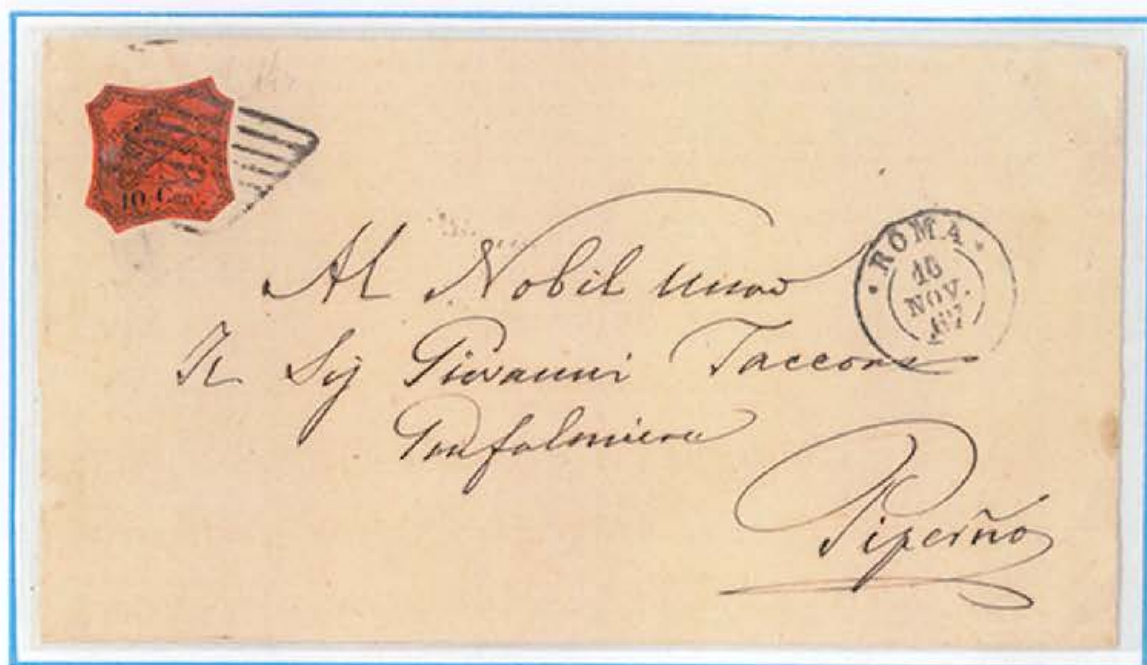 10 Cen.
ROMA
16
NOV.
67
Al Nobil Uomo
Il Sig Giovanni Taccone
Gonfaloniere
Piperno